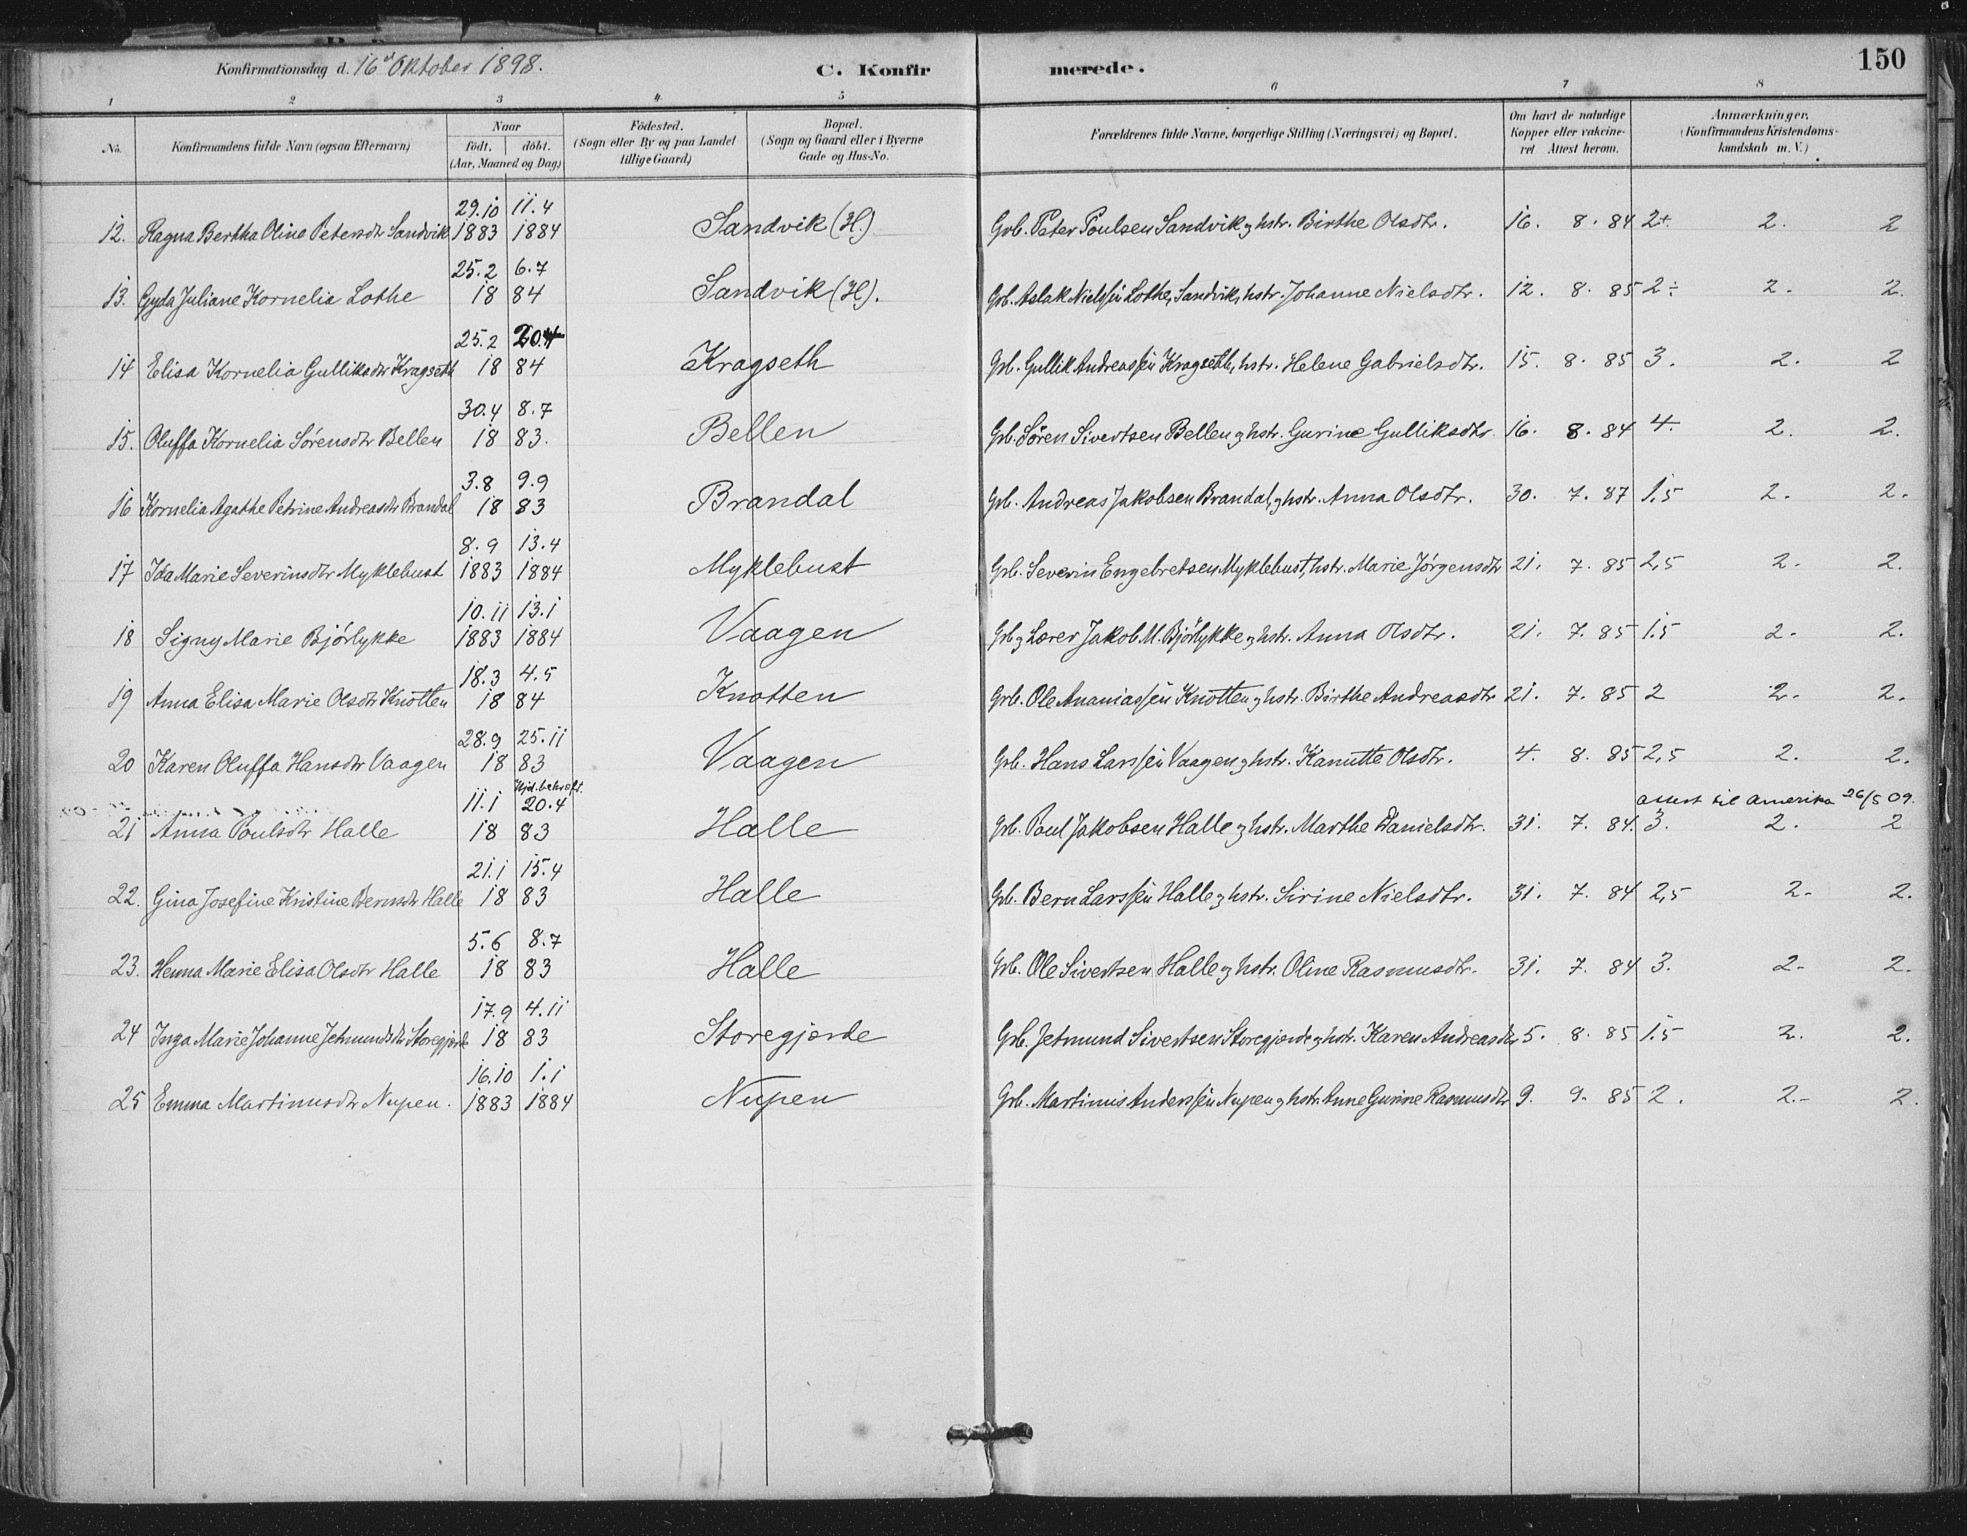 150
Konfirmationsdag d. 16d Oktober 1898.
C. Konfirmerede.
1 2 3 4 5 6 7 8
No.
Konfirmandens fulde Navn (ogsaa Efternavn)
Naar
født. døbt.
(Aar, Maaned og Dag)
Födested.
(Sogn eller By og paa Landet
tillige Gaard)
Bopæl.
(Sogn og Gaard eller i Byerne
Gade og Hus-No.
Forældrenes fulde Navne, borgerlige Stilling (Næringsvei) og Bopæl.
Om havt de naturlige
Kopper eller vakcine-
ret Attest herom.
Anmærkninger.
(Konfirmandens Kristendoms-
kundskab m. V.)
29.10 11.4
12. Ragna Bertha Oline Petersdtr Sandvik 1883 1884 Sandvik (H.) Grb. Peter Poulsen Sandvik og hstr. Birthe Olsdtr. 16. 8. 84 2+. 2. 2
25.2 6.7
13. Gyda Juliane Kornelia Lothe 18 84 Sandvik (H). Grb. Aslak Nielssen Lothe, Sandvik, hstr. Johanne Nielsdtr. 12. 8. 85 2÷ 2. 2.
25.2 20.4
14 Elisa Kornelia Gulliksdtr Kragseth 18 84 Kragseth Grb. Gullik Andreassen Kragseth, hstr. Helene Gabrielsdtr. 15. 8. 85 3. 2. 2
30.4 8.7
15. Oluffa Kornelia Sørensdtr Bellen 18 83. Bellen Grb. Søren Sivertsen Bellen og hstr. Gurine Gulliksdtr. 16. 8. 84 4. 2. 2.
3.8 9.9
16 Kornelia Agathe Petrine Andreasdtr Brandal 18 83 Brandal Grb. Andreas Jakobsen Brandal, og hstr. Anna Olsdtr. 30. 7. 87 1,5 2. 2.
8.9 13.4
17 Ida Marie Severinsdtr Myklebust 1883 1884 Myklebust Grb. Severin Engebretsen Myklebust, hstr. Marie Jørgensdtr 21. 7. 85 2,5 2. 2.
10.11 13.1
18 Signy Marie Bjørlykke 1883 1884 Vaagen Grb og Lærer Jakob M. Bjørlykke og hstr. Anna Olsdtr. 21. 7. 85 1.5 2. 2.
18.3 4.5
19 Anna Elisa Marie Olsdtr Knotten 18 84 Knotten Grb. Ole Ananiassen Knotten og hstr. Birthe Andreasdtr 21. 7. 85 2 2. 2.
28.9 25.11
20 Karen Oluffa Hansdtr Vaagen 18 83 Vaagen Grb. Hans Larssen Vaagen og hstr. Kanutte Olsdtr. 4. 8. 85 2,5 2. 2.
Hjd. bekræft.
11.1 20.4 attest til Amerika 26/5 09.
21 Anna Poulsdtr Halle 18 83 Halle Grb. Poul Jakobsen Halle og hstr. Marthe Danielsdtr. 31. 7. 84. 3. 2. 2
21.1 15.4
22. Gina Josefine Kristine Bernsdtr Halle 18 83 Halle Grb. Bern Larssen Halle og hstr. Sirine Nielsdtr. 31. 7. 84 2,5 2. 2.
5.6 8.7
23. Henna Marie Elisa Olsdtr Halle 18 83 Halle Grb. Ole Sivertsen Halle og hstr. Oline Rasmusdtr. 31. 7. 84 3. 2. 2.
17.9 4.11
24 Inga Marie Johanne Jetmundsdtr Storegjerde 18 83 Storegjerde Grb. Jetmund Sivertsen Storegjerde og hstr. Karen Andreasdtr 5. 8. 85 1.5 2. 2.
16.10 1.1
25 Emma Martinusdtr Nupen. 1883 1884 Nupen Grb. Martinus Anderssen Nupen og hstr. Anne Gurine Rasmusdtr 9. 9. 85 2. 2. 2.